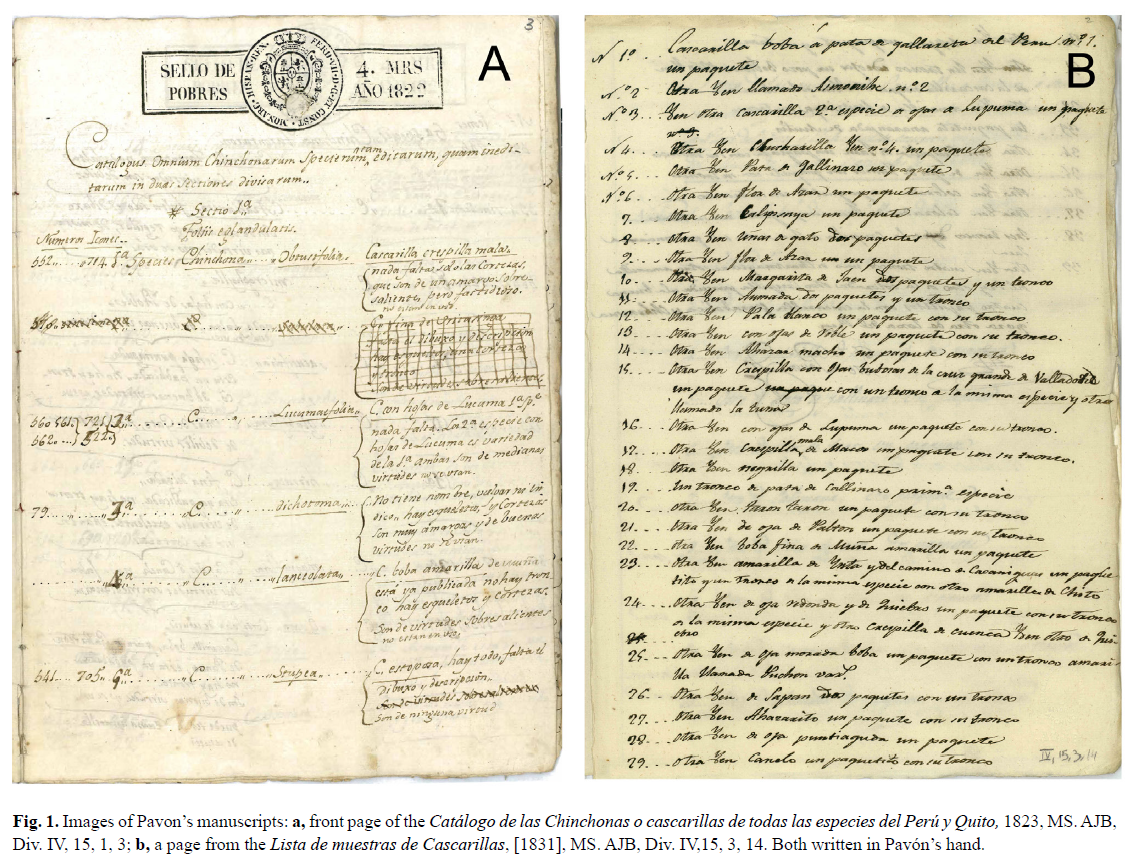 3
SELLO DE
POBRES
HISPAN. REX. FERD. VII. D. G. ET CONST. MONARC.
4. MRS
AÑO 1822
A
Catalogus Omnium Chinchonarum Specierum, edicarum, quam inedi-
tarum in duas Sectiones divisarum..
# Sectio 1ª
Foliis eglandularis.
Numeros Icones..
552.. 714. 1ª Species Chinchona Obtusifolia
Cascarilla crespilla mala.
nada falta sino las Cortezas,
que son de un amargo
saliente, pero fastidioso.
C. fina de
falta el dibuxo y descripcion
560 561. 721 2ª C. Lucumaefolia
562 522
C. con hojas de Lucuma 1ª
nada falta. La 2ª especie con
hojas de Lucuma es variedad
de la 1ª ambas son de medianas
virtudes
79. 3ª C. Dichotoma
No tiene nombre, vulgar ni in-
dice, hay esqueletos, y Cortezas
son muy amargas y de buenas
virtudes no se usan.
4ª C. lanceolata
C. boba amarilla de muña
está ya publicada no hay tron-
co hay esqueletos y cortezas.
Son de virtudes Sobresalientes
no estan en uso
641. 705. 5ª C. Stupea
C. estoposa, hay todo, falta el
Dibuxo y descripcion.
Son de ninguna virtud
2
B
Nº 1º Cascarilla boba á pata de gallareta del Peru nº 1.
un paquete
Nº 2 Otra Yen llamado nº 2
Nº 3 Yen otra cascarilla 2ª especie de ojas a Lupuma un paquete
N 4. Otra Yen Cucharilla Yen nº 4. un paquete
Nº 5. Otra Yen Pata de Gallinazo un paquete
Nº 6 Otra Yen flor de Azar un paquete
7. Otra Yen un paquete
8 Otra Yen uñas de gato dos paquetes
9 Otra Yen flor de Azar un paquete
10 Otra Yen Margarita de Jaen dos paquetes y un tronco
11 Otra Yen Aumada dos paquetes y un tronco
12 Otra Yen Pala blanco un paquete con su tronco
13 Otra Yen con ojas de roble un paquete con su tronco.
14 Otra Yen Ahazar macho un paquete con su tronco
15. Otra Yen Crespilla con ojas de la cruz grande de Valladolid
un paquete con un tronco a la misma especie y otra
llamado la tuna
16 Otra Yen con ojas de Lupuma un paquete con su tronco.
17. Otra Yen Crespilla mala de Macos un paquete con su tronco.
18 Otra Yen negrilla un paquete
19. Un tronco de pata de Gallinazo primª especie
20 Otra Yen un paquete con su tronco
21. Otra Yen de oja de Palton un paquete con su tronco
22. Otra Yen boba fina de Muña amarilla un paquete
23 Otra Yen amarilla de Ynta y del camino de un paque-
tito y un tronco de la misma especie con otro amarilla de Chito
24. Otra Yen de oja redonda y de Quiebas un paquete con su tronco
de la misma especie y otro Crespilla de cuenca Yen otro de
25. Otra Yen de oja morada boba un paquete con un tronco amari-
lla llamada Puchon var.
26 Otra Yen de Sapan dos paquetes con un tronco
27. Otra Yen Ahazarito un paquete con su tronco
28. Otra Yen de oja puntiaguda un paquete
29. Otra Yen Canelo un paquetito con su tronco
IV, 15, 3, 14
Fig. 1. Images of Pavon’s manuscripts: a, front page of the Catálogo de las Chinchonas o cascarillas de todas las especies del Perú y Quito, 1823, MS. AJB,
Div. IV, 15, 1, 3; b, a page from the Lista de muestras de Cascarillas, [1831], MS. AJB, Div. IV,15, 3, 14. Both written in Pavón’s hand.